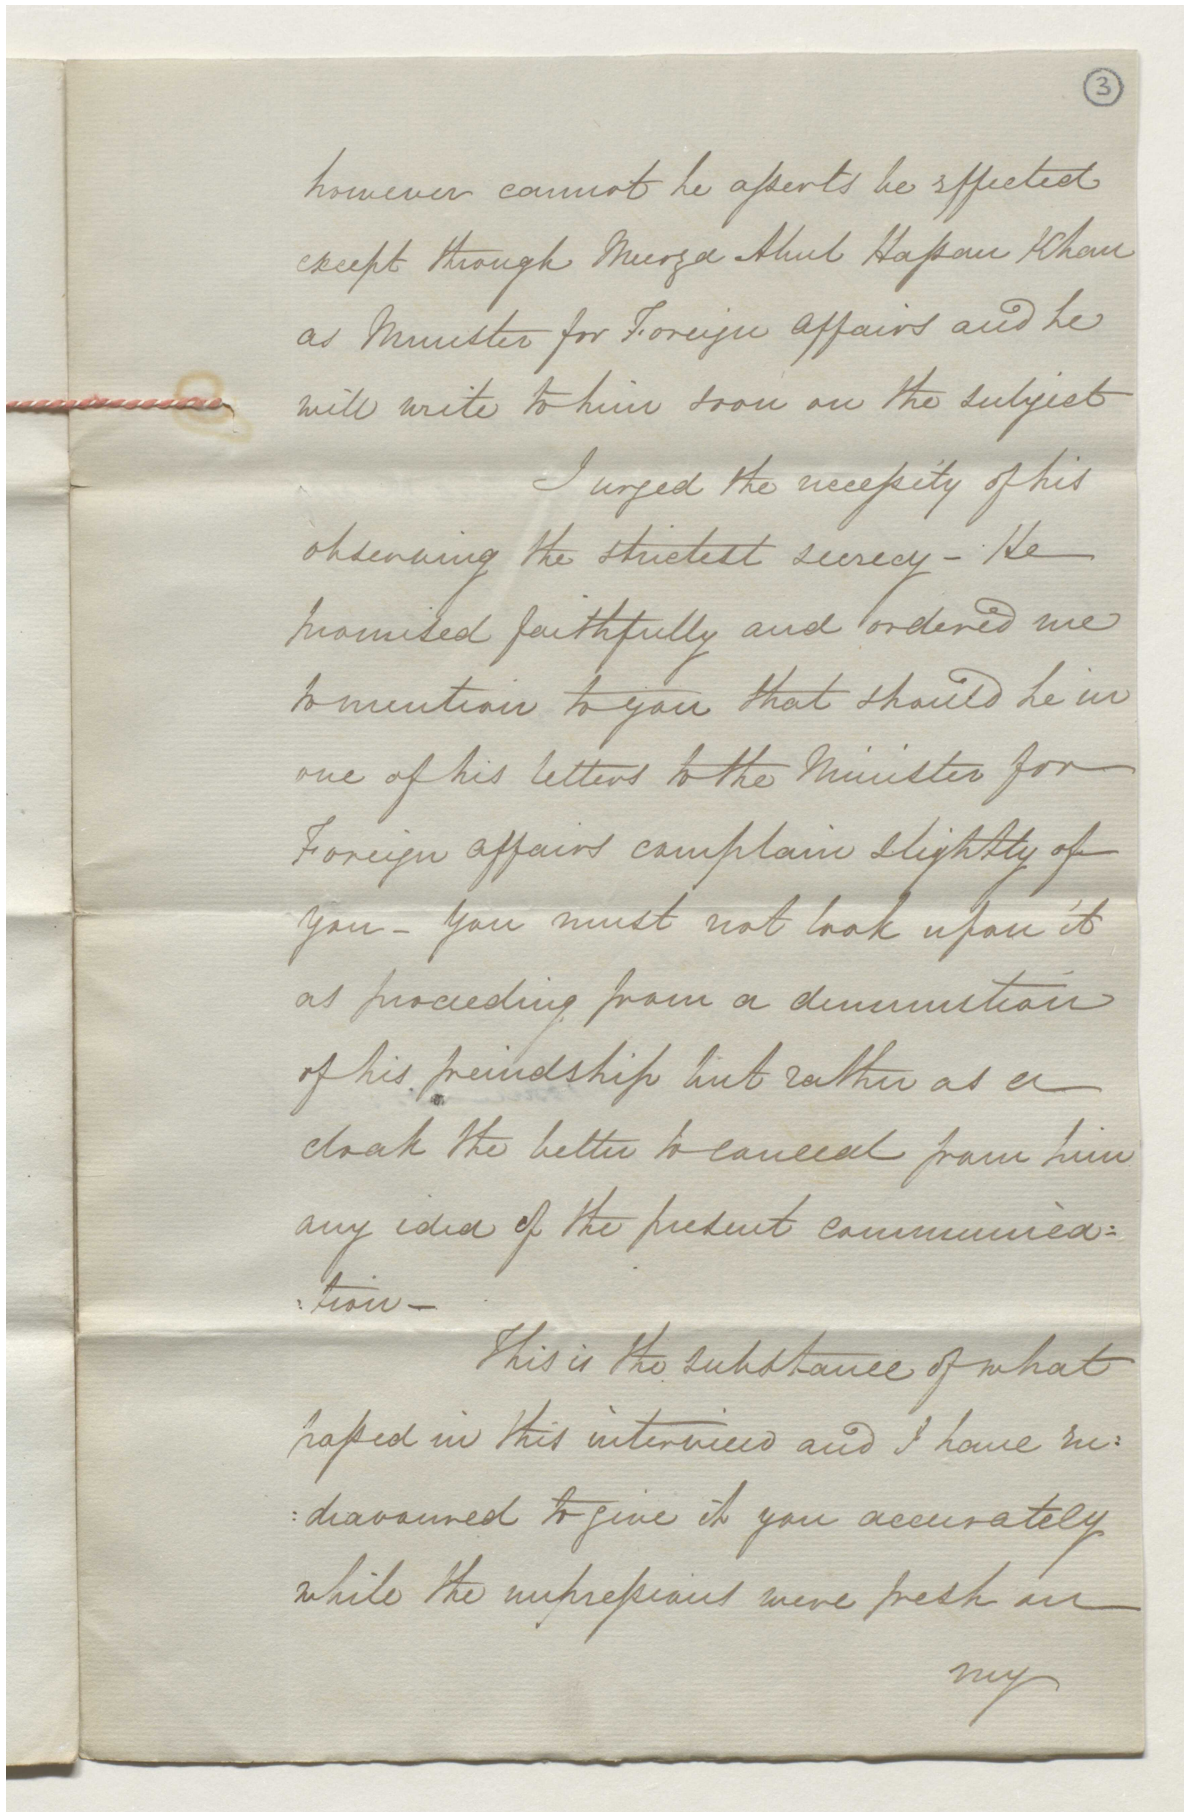 3
however cannot he asserts be effected
except through Meerza Abul Hassan Khan
as Minister for Foreign affairs and he
will write to him soon on the subject
I urged the necessity of his
observing the strictest secrecy – He
promised faithfully and ordered me
to mention to you that should he in
one of his letters to the Minister for
Foreign affairs complain slightly of
you – you must not look upon it
as proceeding from a diminution
of his freindship but rather as a
cloak the better to conceal from him
any idea of the present communica:
:tion –
This is the substance of what
passed in this interview and I have en:
:deavoured to give it you accurately
while the impressions were fresh on
my